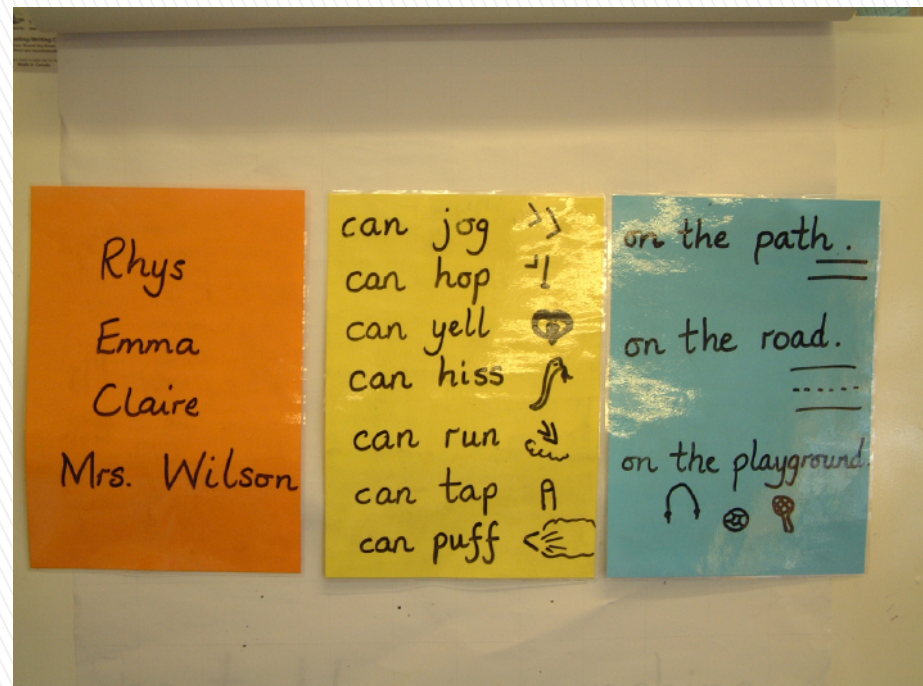 Rhys
Emma
Claire
Mrs. Wilson
can jog
can hop
can yell
can hiss
can run
can tap
can puff
on the path.
on the road.
on the playground.
Made in Canada